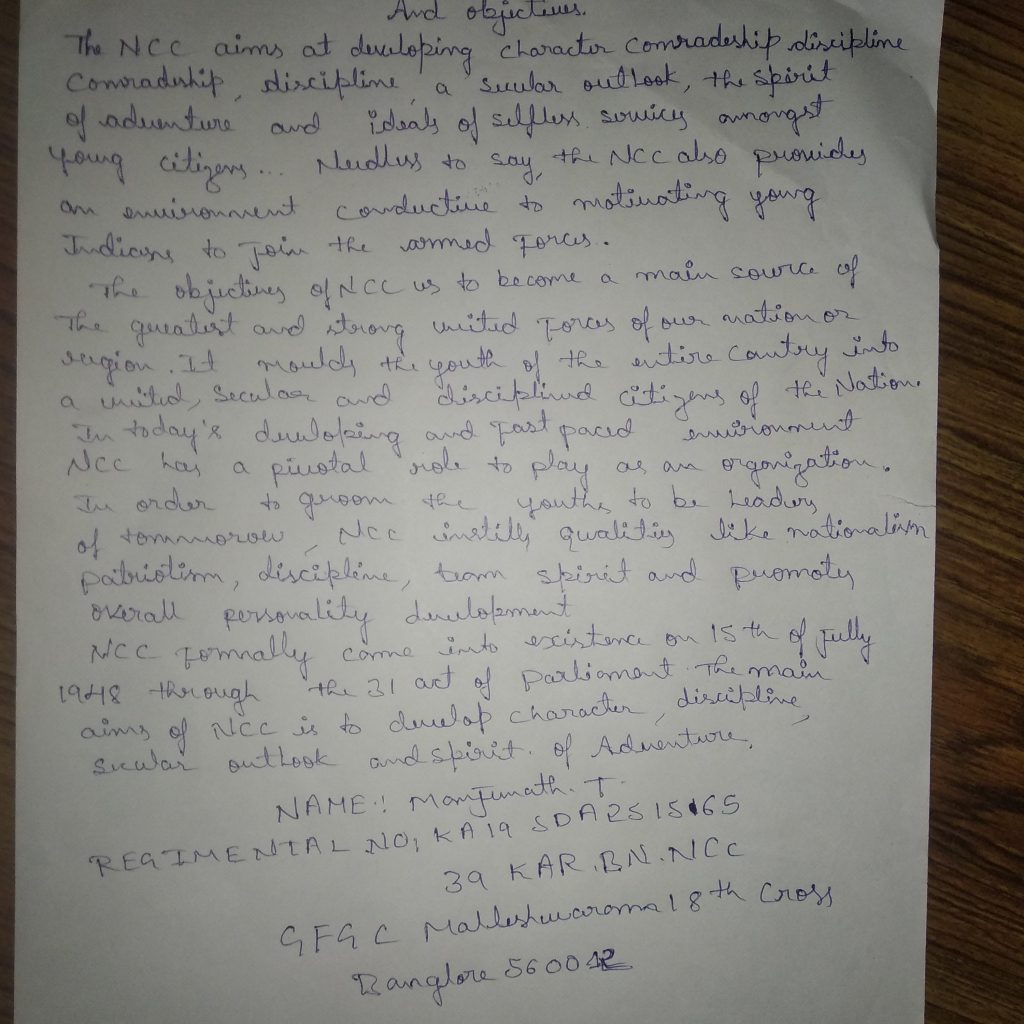 And objectives.
The NCC aims at developing character comradeship discipline
Comradeship, discipline, a secular outlook, the spirit
of adventure and ideals of selfless services amongst
young citizens... Needless to say, the NCC also provides
an environment conductive to motivating young
Indians to join the armed forces.
The objectives of NCC us to become a main source of
The greatest and strong united forces of our nation or
region. It moulds the youth of the entire cantry into
a united, secular and disciplined citizens of the Nation.
In today's developing and fast paced environment
NCC has a pivotal role to play as an organization.
In order to groom the youths to be leaders
of tommorow, NCC instills qualities like nationalism
patriotism, discipline, team spirit and promotes
overall personality development
NCC formally came into existence on 15th of july
1948 through the 31 act of parliament. The main
aims of NCC is to develop character, discipline,
secular outlook and spirit. of Adventure,
NAME: Manjunath. T.
REGIMENTAL NO; KA19 SDA2515165
39 KAR.BN.NCC
GFGC Malleshwarama 18th Cross
Banglore